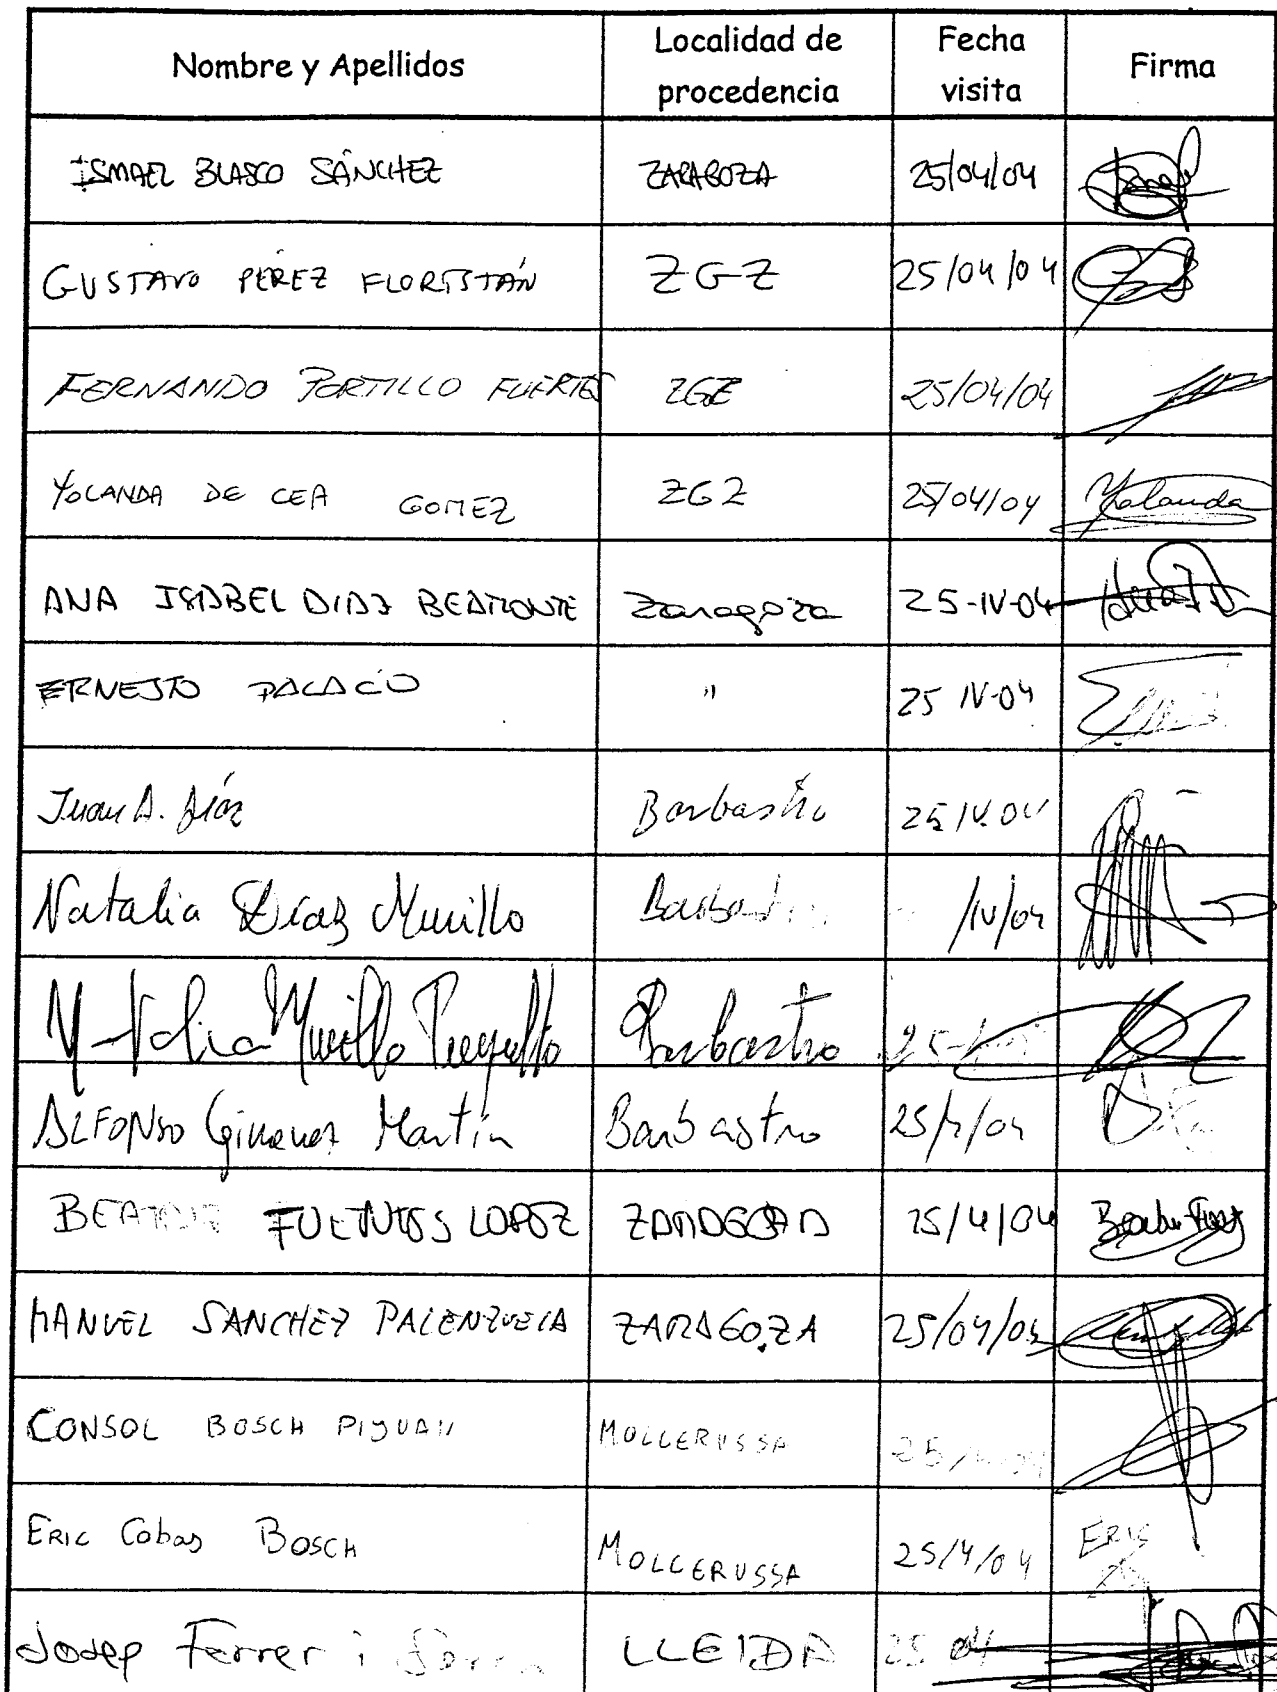 Nombre y Apellidos Localidad de procedencia Fecha visita Firma
ISMAEL BLASCO SÁNCHEZ ZARAGOZA 25/04/04
GUSTAVO PÉREZ FLORISTÁN ZGZ 25/04/04
FERNANDO PORTILLO FUERTES ZGZ 25/04/04
YOLANDA DE CEA GOMEZ ZGZ 25/04/04 Yolanda
ANA ISABEL DIAZ BEAMONTE Zaragoza 25-IV-04
ERNESTO PALACIO " 25 IV-04
Juan A. Díaz Barbastro 25 IV.04
Natalia Díaz Murillo Barbastro /IV/04
Murillo Barbastro 25
ALFONSO Gimenez Martín Barbastro 25/4/04
BEATRIZ FUENTES LOPEZ ZARAGOZA 25/4/04
MANUEL SANCHEZ PALENZUELA ZARAGOZA 25/04/04
CONSOL BOSCH PIJUAN MOLLERUSSA 25/
ERIC Cobas BOSCH MOLLERUSSA 25/4/04 ERIC
Josep Ferrer i LLEIDA 25 04